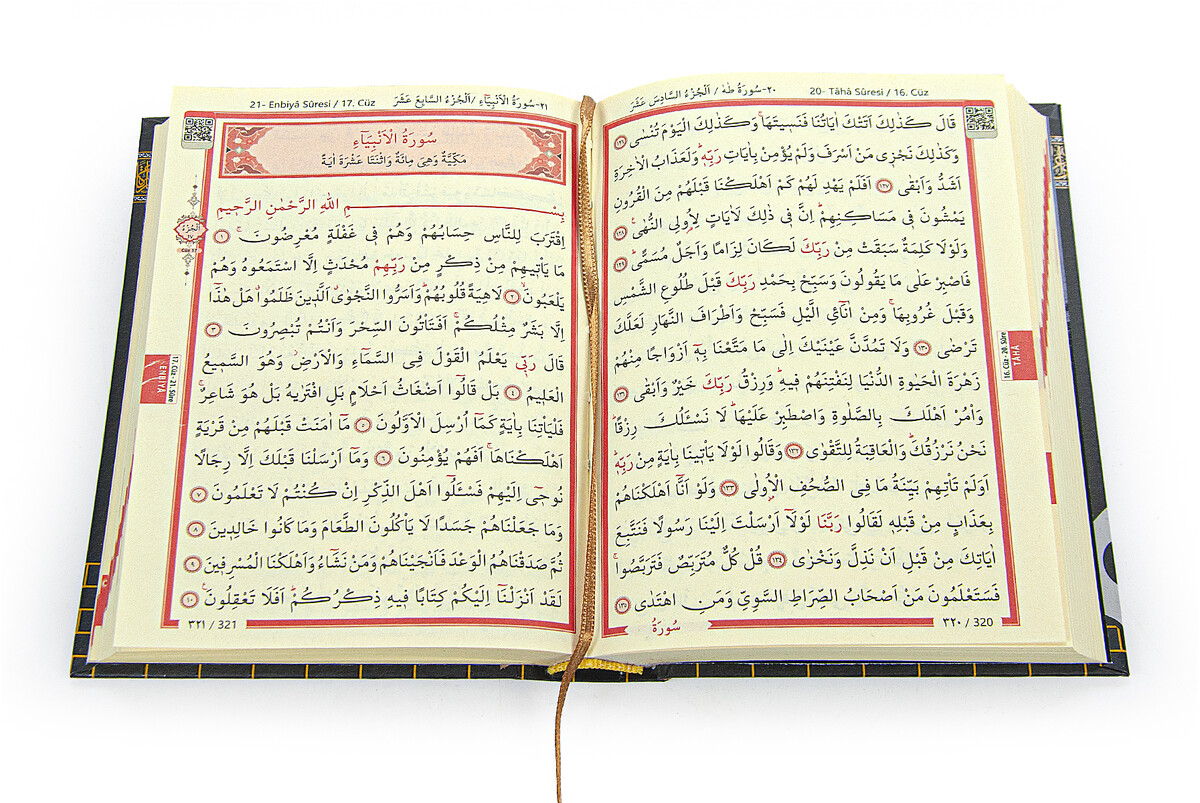 ٢٠-سُورَةُ طٰهٰ / اَلْجُزْءُ السَّادِسَ عَشَرَ
20- Tâhâ Sûresi / 16. Cüz
قَالَ كَذٰلِكَ اَتَتْكَ اٰيَاتُنَا فَنَس۪يتَهَاۚ وَكَذٰلِكَ الْيَوْمَ تُنْسٰى ﴿١٢٦﴾
وَكَذٰلِكَ نَجْز۪ي مَنْ اَسْرَفَ وَلَمْ يُؤْمِنْ بِاٰيَاتِ رَبِّه۪ۜ وَلَعَذَابُ الْاٰخِرَةِ
اَشَدُّ وَاَبْقٰى ﴿١٢٧﴾ اَفَلَمْ يَهْدِ لَهُمْ كَمْ اَهْلَكْنَا قَبْلَهُمْ مِنَ الْقُرُونِ
يَمْشُونَ ف۪ي مَسَاكِنِهِمْۜ اِنَّ ف۪ي ذٰلِكَ لَاٰيَاتٍ لِاُو۬لِي النُّهٰى۟ ﴿١٢٨﴾
وَلَوْلَا كَلِمَةٌ سَبَقَتْ مِنْ رَبِّكَ لَكَانَ لِزَامًا وَاَجَلٌ مُسَمًّىۜ ﴿١٢٩﴾
فَاصْبِرْ عَلٰى مَا يَقُولُونَ وَسَبِّحْ بِحَمْدِ رَبِّكَ قَبْلَ طُلُوعِ الشَّمْسِ
وَقَبْلَ غُرُوبِهَاۚ وَمِنْ اٰنَٓائِ الَّيْلِ فَسَبِّحْ وَاَطْرَافَ النَّهَارِ لَعَلَّكَ
تَرْضٰى ﴿١٣٠﴾ وَلَا تَمُدَّنَّ عَيْنَيْكَ اِلٰى مَا مَتَّعْنَا بِه۪ٓ اَزْوَاجًا مِنْهُمْ
زَهْرَةَ الْحَيٰوةِ الدُّنْيَا لِنَفْتِنَهُمْ ف۪يهِۜ وَرِزْقُ رَبِّكَ خَيْرٌ وَاَبْقٰى ﴿١٣١﴾
وَأْمُرْ اَهْلَكَ بِالصَّلٰوةِ وَاصْطَبِرْ عَلَيْهَاۜ لَا نَسْـَٔلُكَ رِزْقًاۜ
نَحْنُ نَرْزُقُكَۜ وَالْعَاقِبَةُ لِلتَّقْوٰى ﴿١٣٢﴾ وَقَالُوا لَوْلَا يَأْت۪ينَا بِاٰيَةٍ مِنْ رَبِّه۪ۜ
اَوَلَمْ تَأْتِهِمْ بَيِّنَةُ مَا فِي الصُّحُفِ الْاُو۫لٰى ﴿١٣٣﴾ وَلَوْ اَنَّٓا اَهْلَكْنَاهُمْ
بِعَذَابٍ مِنْ قَبْلِه۪ لَقَالُوا رَبَّنَا لَوْلَٓا اَرْسَلْتَ اِلَيْنَا رَسُولًا فَنَتَّبِعَ
اٰيَاتِكَ مِنْ قَبْلِ اَنْ نَذِلَّ وَنَخْزٰى ﴿١٣٤﴾ قُلْ كُلٌّ مُتَرَبِّصٌ فَتَرَبَّصُواۚ
فَسَتَعْلَمُونَ مَنْ اَصْحَابُ الصِّرَاطِ السَّوِيِّ وَمَنِ اهْتَدٰى ﴿١٣٥﴾
٣٢٠ / 320
سُورَةُ
16. Cüz - 20. Sûre
TÂHÂ
٢١-سُورَةُ الْاَنْبِيَٓاءِ / اَلْجُزْءُ السَّابِعَ عَشَرَ
21- Enbiyâ Sûresi / 17. Cüz
سُورَةُ الْاَنْبِيَٓاءِ
مَكِّيَّةٌ وَهِيَ مِائَةٌ وَاثْنَتَا عَشْرَةَ اٰيَةً
بِسْمِ اللهِ الرَّحْمٰنِ الرَّح۪يمِ
اِقْتَرَبَ لِلنَّاسِ حِسَابُهُمْ وَهُمْ ف۪ي غَفْلَةٍ مُعْرِضُونَۚ ﴿١﴾
مَا يَأْت۪يهِمْ مِنْ ذِكْرٍ مِنْ رَبِّهِمْ مُحْدَثٍ اِلَّا اسْتَمَعُوهُ وَهُمْ
يَلْعَبُونَۙ ﴿٢﴾ لَاهِيَةً قُلُوبُهُمْۜ وَاَسَرُّوا النَّجْوٰىۗ اَلَّذ۪ينَ ظَلَمُواۗ هَلْ هٰذَٓا
اِلَّا بَشَرٌ مِثْلُكُمْۚ اَفَتَأْتُونَ السِّحْرَ وَاَنْتُمْ تُبْصِرُونَ ﴿٣﴾
قَالَ رَبّ۪ي يَعْلَمُ الْقَوْلَ فِي السَّمَٓاءِ وَالْاَرْضِۘ وَهُوَ السَّم۪يعُ
الْعَل۪يمُ ﴿٤﴾ بَلْ قَالُٓوا اَضْغَاثُ اَحْلَامٍ بَلِ افْتَرٰيهُ بَلْ هُوَ شَاعِرٌۚ
فَلْيَأْتِنَا بِاٰيَةٍ كَمَٓا اُرْسِلَ الْاَوَّلُونَ ﴿٥﴾ مَٓا اٰمَنَتْ قَبْلَهُمْ مِنْ قَرْيَةٍ
اَهْلَكْنَاهَاۚ اَفَهُمْ يُؤْمِنُونَ ﴿٦﴾ وَمَٓا اَرْسَلْنَا قَبْلَكَ اِلَّا رِجَالًا
نُوح۪ٓي اِلَيْهِمْ فَسْـَٔلُٓوا اَهْلَ الذِّكْرِ اِنْ كُنْتُمْ لَا تَعْلَمُونَ ﴿٧﴾
وَمَا جَعَلْنَاهُمْ جَسَدًا لَا يَأْكُلُونَ الطَّعَامَ وَمَا كَانُوا خَالِد۪ينَ ﴿٨﴾
ثُمَّ صَدَقْنَاهُمُ الْوَعْدَ فَاَنْجَيْنَاهُمْ وَمَنْ نَشَٓاءُ وَاَهْلَكْنَا الْمُسْرِف۪ينَ ﴿٩﴾
لَقَدْ اَنْزَلْنَٓا اِلَيْكُمْ كِتَابًا ف۪يهِ ذِكْرُكُمْۜ اَفَلَا تَعْقِلُونَ۟ ﴿١٠﴾
٣٢١ / 321
اَلْجُزْءُ
١٧
Cüz 17
17. Cüz - 21. Sûre
ENBİYÂ